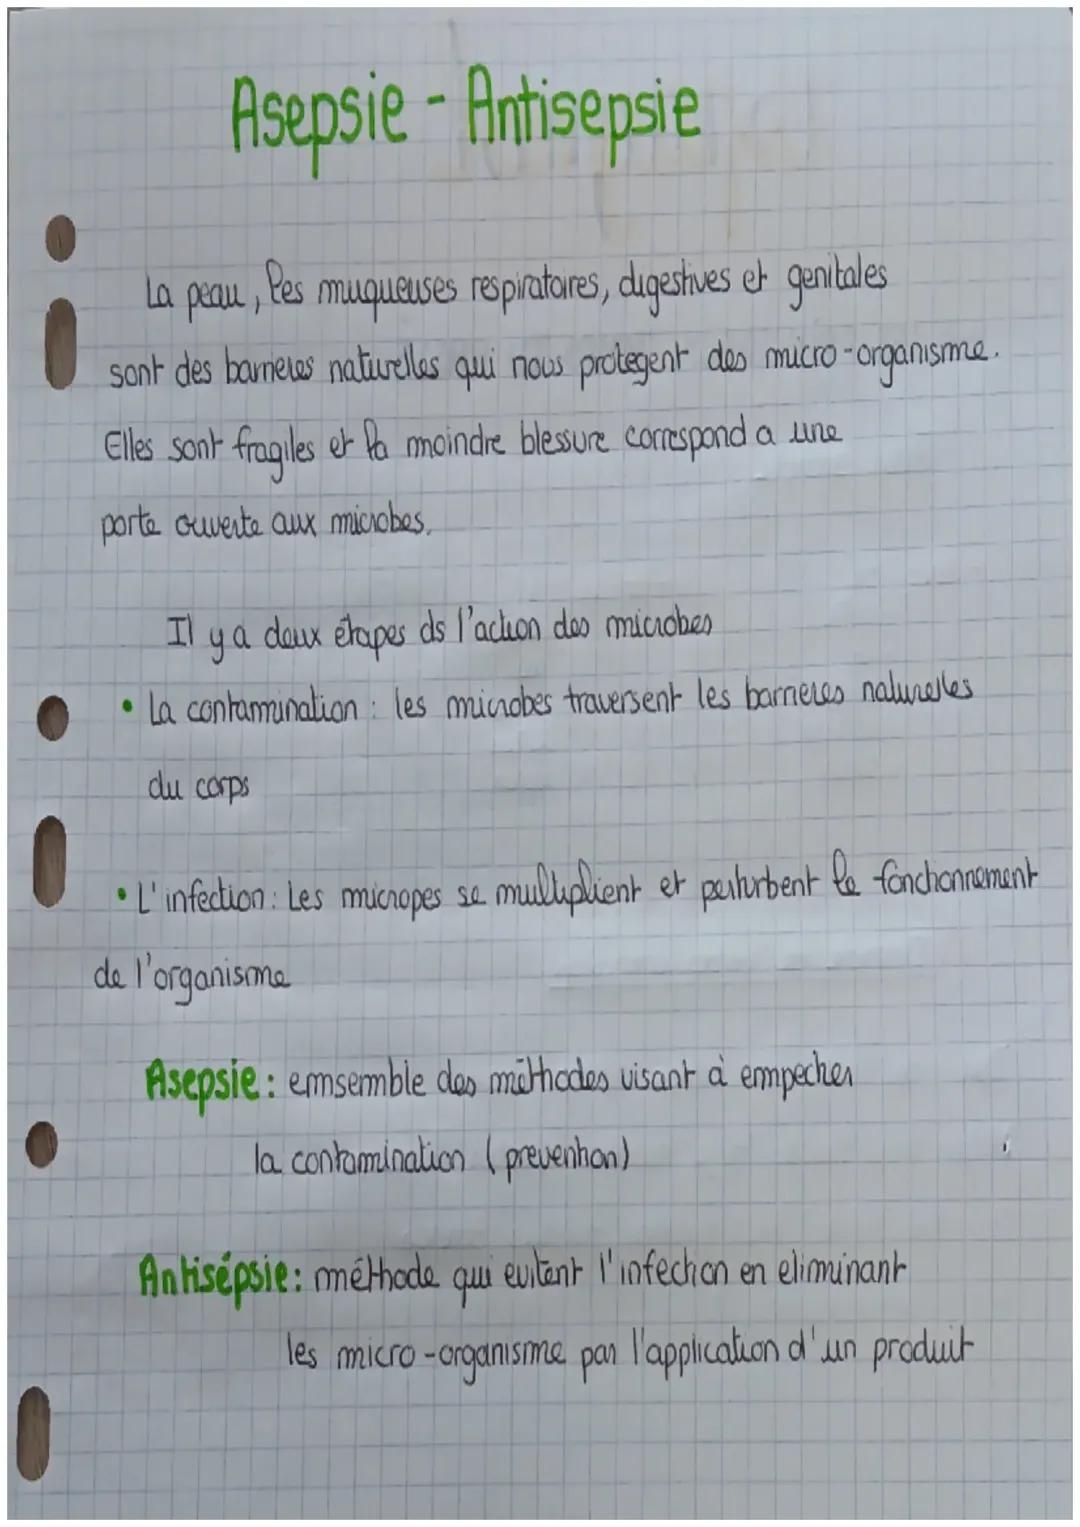 Asepsie - Antisepsie
La peau, les muqueuses respiratoires, digestives et genitales
sont des barrieres naturelles qui nous protegent des micro-organisme.
Elles sont fragiles et la moindre blessure correspond a une
porte ouverte aux microbes.
Il y a deux étapes ds l'action des microbes
• La contamination : les microbes traversent les barrieres naturelles
du corps
• L'infection : Les micropes se multiplient et perturbent le fonctionnement
de l'organisme
Asepsie : ensemble des méthodes visant à empecher
la contamination (prevention)
Antisépsie : méthode qui evitent l'infection en eliminant
les micro-organisme par l'application d'un produit